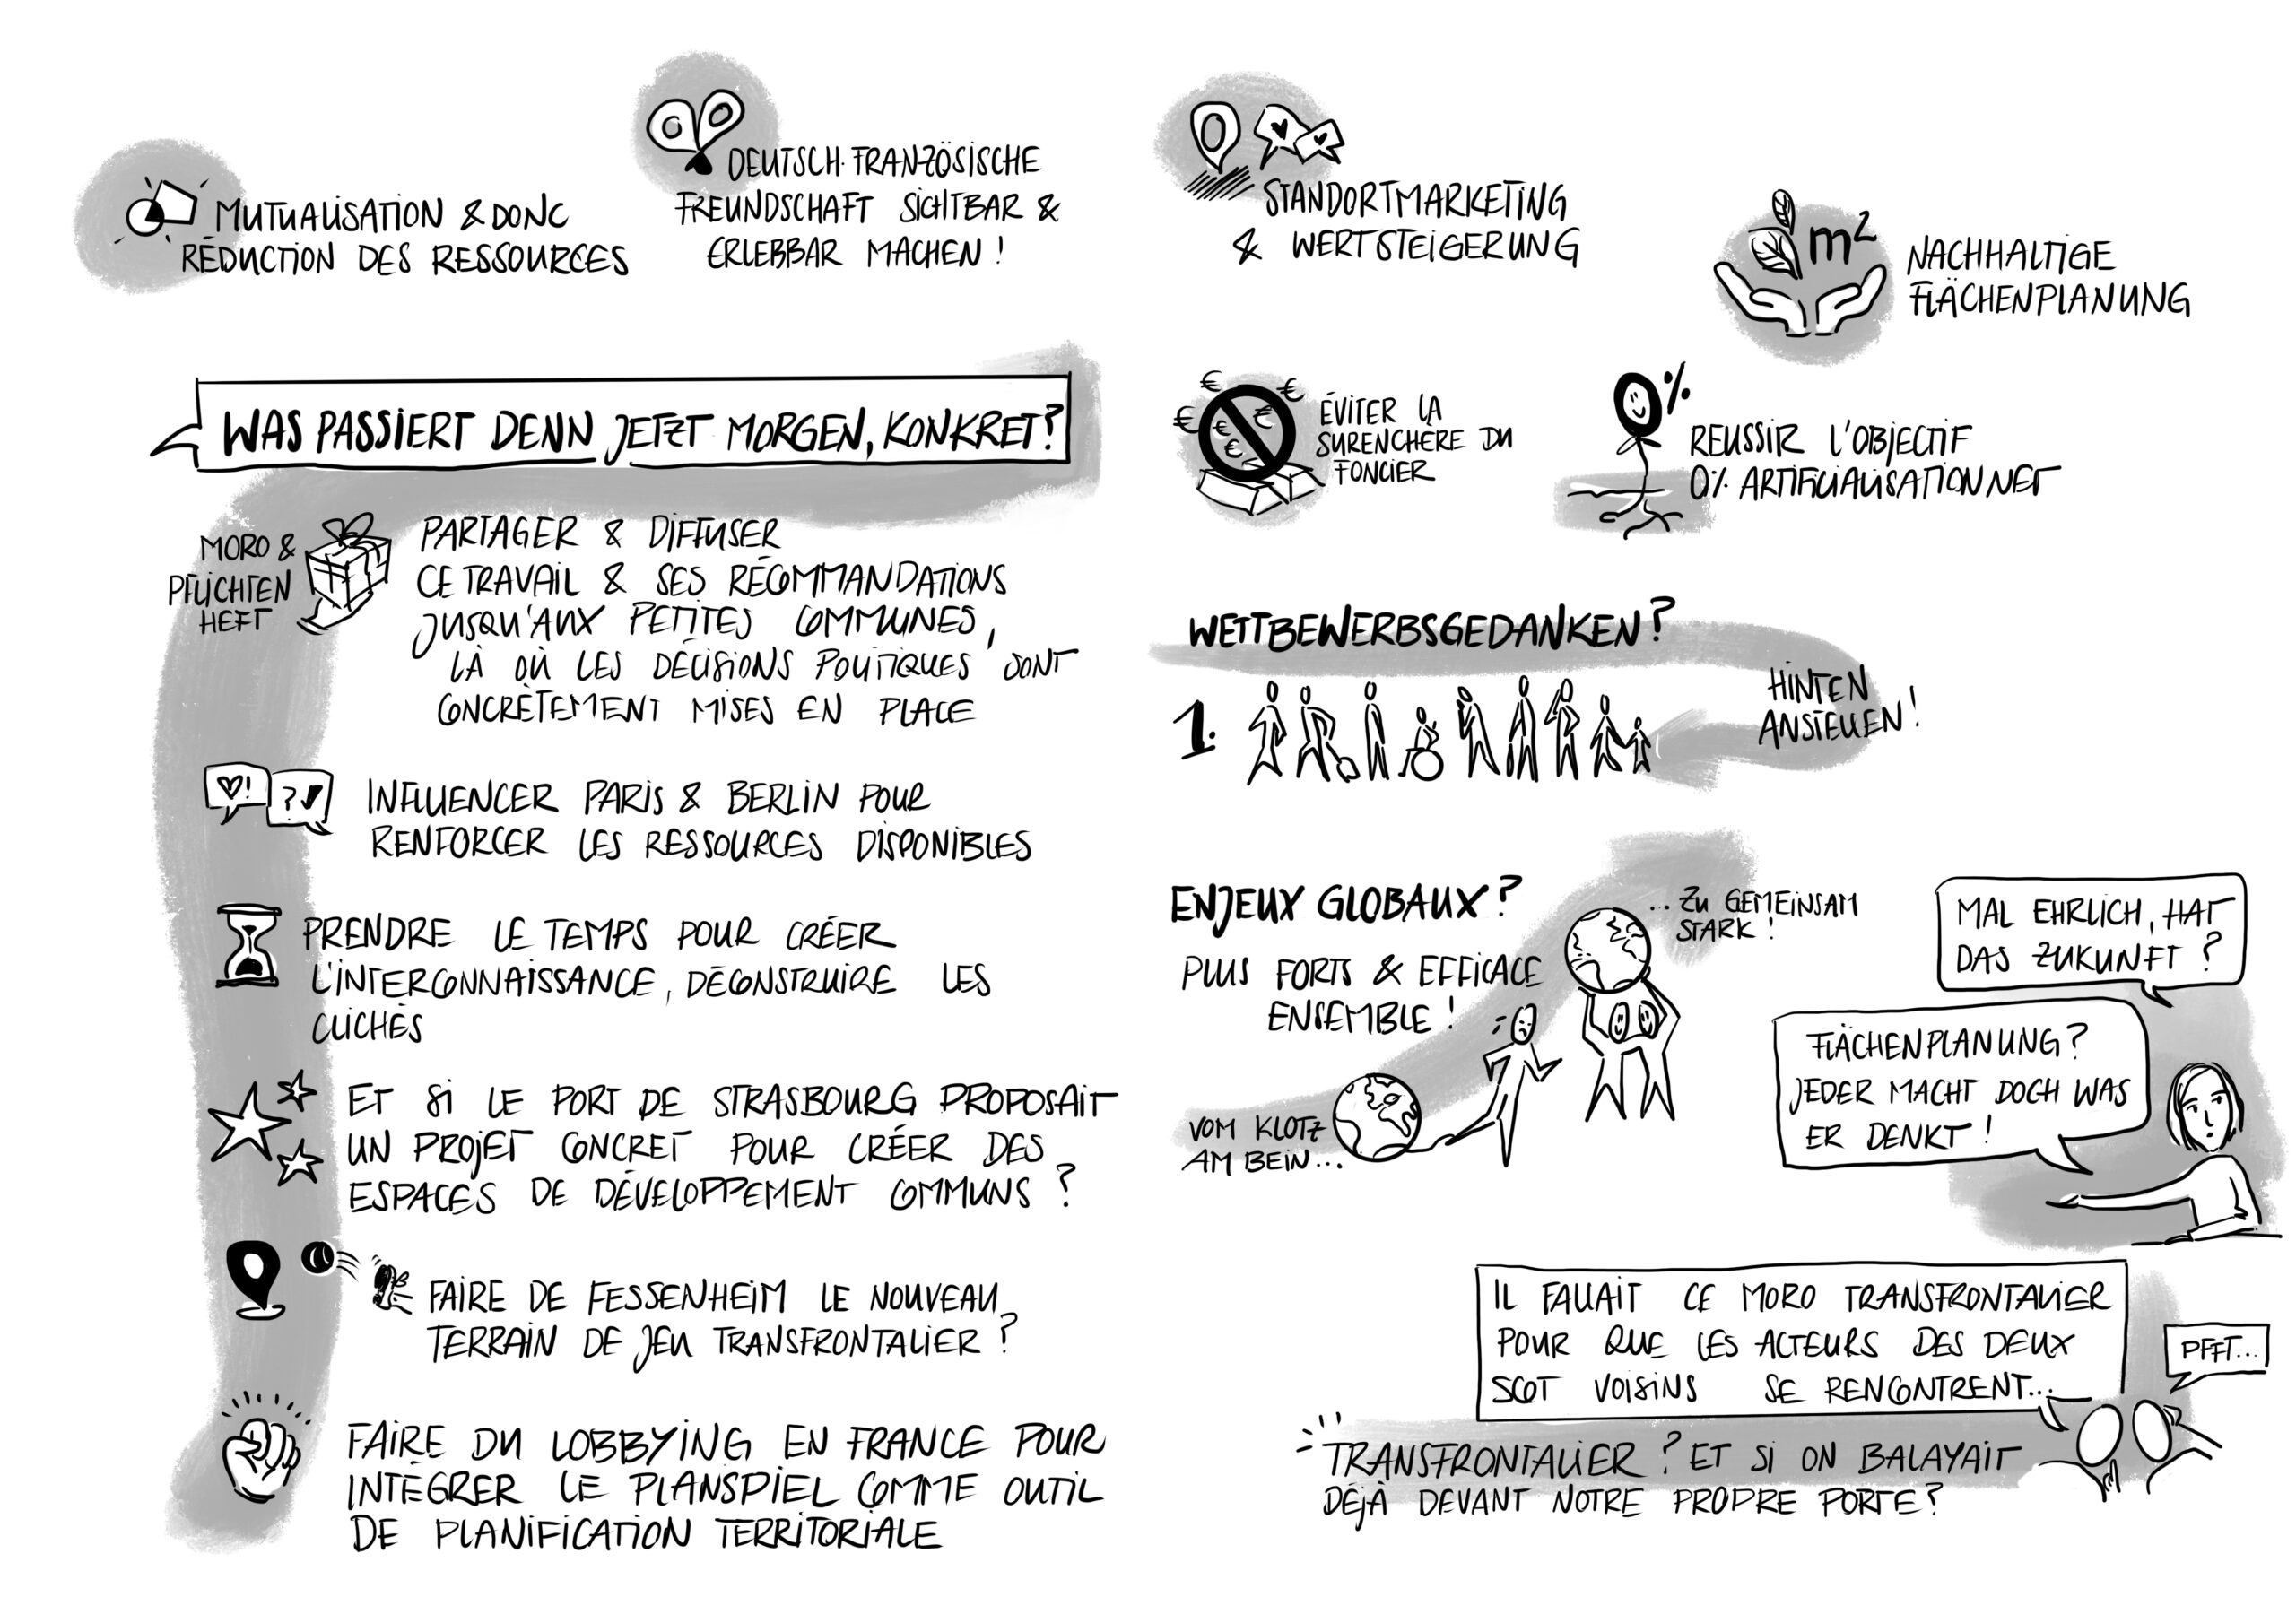 MUTUALISATION & DONC
RÉDUCTION DES RESSOURCES
DEUTSCH-FRANZÖSISCHE
FREUNDSCHAFT SICHTBAR &
ERLEBBAR MACHEN !
STANDORTMARKETING
& WERTSTEIGERUNG
m²
NACHHALTIGE
FLÄCHENPLANUNG
WAS PASSIERT DENN JETZT MORGEN, KONKRET?
MORO &
PFLICHTEN
HEFT
PARTAGER & DIFFUSER
CE TRAVAIL & SES RECOMMANDATIONS
JUSQU'AUX PETITES COMMUNES,
LÀ OÙ LES DÉCISIONS POLITIQUES SONT
CONCRÈTEMENT MISES EN PLACE
!
?
INFLUENCER PARIS & BERLIN POUR
RENFORCER LES RESSOURCES DISPONIBLES
PRENDRE LE TEMPS POUR CRÉER
L'INTERCONNAISSANCE, DÉCONSTRUIRE LES
CLICHÉS
ET SI LE PORT DE STRASBOURG PROPOSAIT
UN PROJET CONCRET POUR CRÉER DES
ESPACES DE DÉVELOPPEMENT COMMUNS ?
FAIRE DE FESSENHEIM LE NOUVEAU
TERRAIN DE JEU TRANSFRONTALIER ?
FAIRE DU LOBBYING EN FRANCE POUR
INTÉGRER LE PLANSPIEL COMME OUTIL
DE PLANIFICATION TERRITORIALE
€ € € € € €
ÉVITER LA
SURENCHÈRE DU
FONCIER
%
REUSSIR L'OBJECTIF
0% ARTIFICIALISATION NET
WETTBEWERBSGEDANKEN?
1.
HINTEN
ANSTELLEN!
ENJEUX GLOBAUX?
PLUS FORTS & EFFICACE
ENSEMBLE !
VOM KLOTZ
AM BEIN...
... ZU GEMEINSAM
STARK !
MAL EHRLICH, HAT
DAS ZUKUNFT ?
FLÄCHENPLANUNG?
JEDER MACHT DOCH WAS
ER DENKT !
IL FALLAIT CE MORO TRANSFRONTALIER
POUR QUE LES ACTEURS DES DEUX
SCOT VOISINS SE RENCONTRENT...
PFFT...
TRANSFRONTALIER ? ET SI ON BALAYAIT
DÉJÀ DEVANT NOTRE PROPRE PORTE?